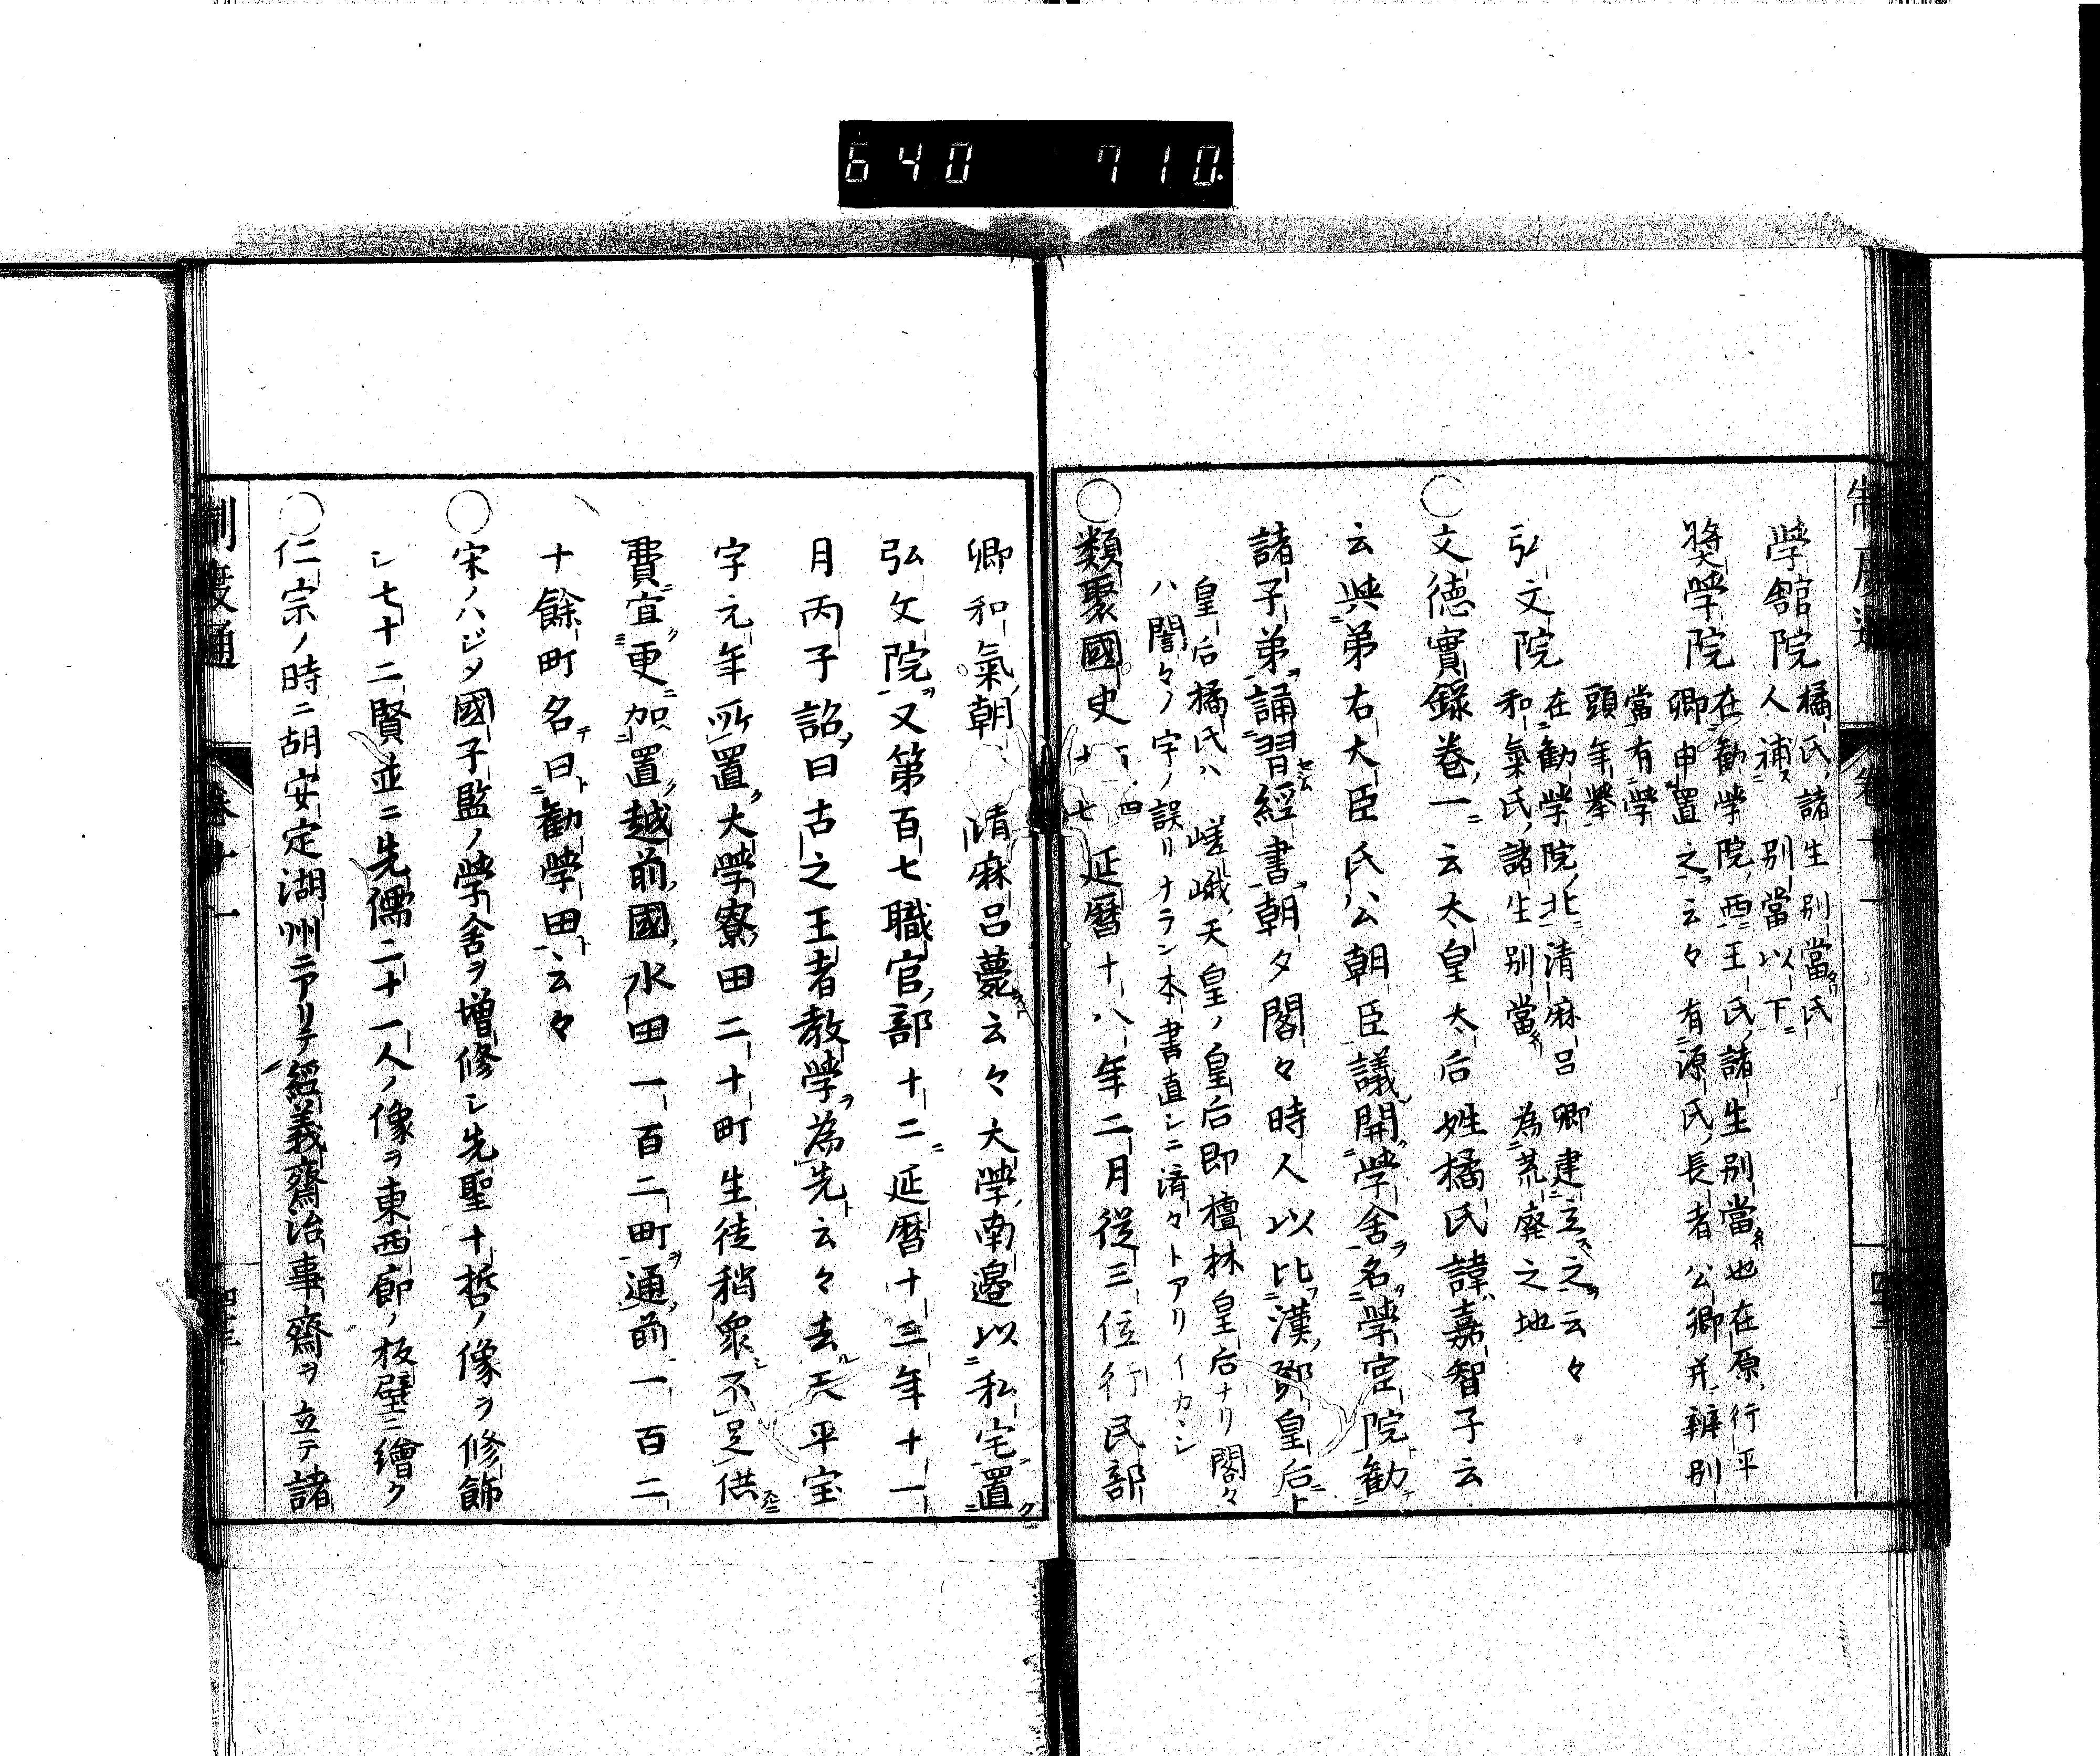 640 710.
制度通 卷十一
學館院 橘氏諸生別當氏
人補別當以下
奬学院 在勸学院西王氏諸生別當也在原行平
卿申置之云々有源氏長者公卿并辨別
當有学
頭年挙
弘文院 在勸学院北清麻呂卿建立之云々
和氣氏諸生別當為荒廢之地
○文德實錄卷一云太皇太后姓橘氏諱嘉智子云
云與弟右大臣氏公朝臣議開学舍名学官院勸
諸子弟誦習經書朝夕誾々時人以比漢鄧皇后
皇后橘氏ハ嵯峨天皇ノ皇后即檀林皇后ナリ誾々
ハ誾々ノ字ノ誤リナラン本書直シニ濟々トアリイカン
○類聚國史百四十七延曆十八年二月従三位行民部
卿和氣朝臣清麻呂薨云々大學南邊以私宅置
弘文院又第百七職官部十二延暦十三年十一
月丙子詔曰古之王者教學為先云々去天平宝
字元年所置大學寮田二十町生徒稍衆不足供
費宜更加置越前國水田一百二町通前一百二
十餘町名曰勸學田云々
○宋ノハジメ國子監ノ學舍ヲ增修シ先聖十哲ノ像ヲ修飾
シ七十二賢並ニ先儒二十一人ノ像ヲ東西廊ノ板壁ニ繪ク
○仁宗ノ時ニ胡安定湖州ニアリテ經義齋治事齋ヲ立テ諸
制度通 卷十一